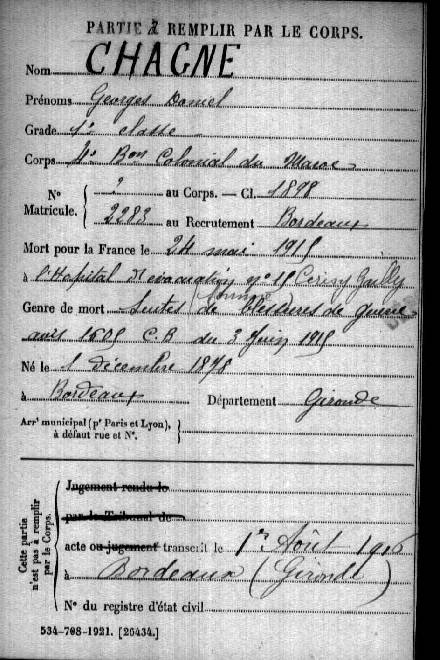 PARTIE À REMPLIR PAR LE CORPS.
Nom CHAGNE
Prénoms Georges Daniel
Grade 1e classe
Corps 4e Bon Colonial du Maroc
N° Matricule. { ? au Corps. — Cl. 1898
2283 au Recrutement Bordeaux
Mort pour la France le 24 mai 1915
à l'Hopital d'evacuation n° 15 Cerisy Gailly
(Somme)
Genre de mort Suites de blessures de guerre
avis 1505 C.B du 3 Juin 1915
Né le 1 Décembre 1878
à Bordeaux Département Gironde
Arrt municipal (pr Paris et Lyon),
à défaut rue et N°.
Cette partie n'est pas à remplir par le Corps.
Jugement rendu le
par le Tribunal de
acte ou jugement transcrit le 1er Août 1916
à Bordeaux (Gironde)
N° du registre d'état civil
534-708-1921. [26434.]